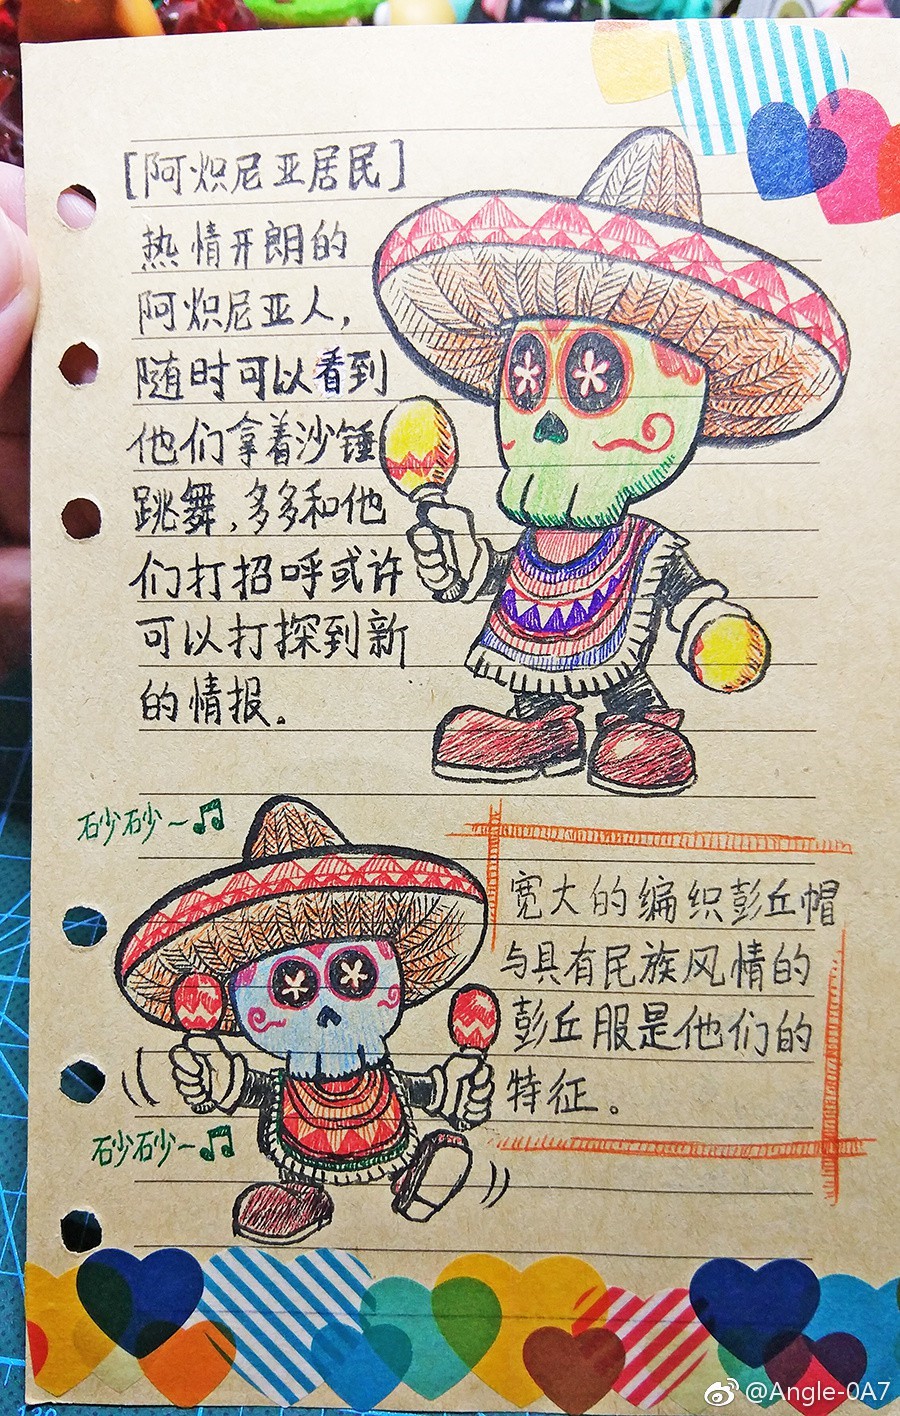 [阿炽尼亚居民]
热情开朗的
阿炽尼亚人，
随时可以看到
他们拿着沙锤
跳舞，多多和他
们打招呼或许
可以打探到新
的情报。
砂砂~♫
宽大的编织彭丘帽
与具有民族风情的
彭丘服是他们的
特征。
砂砂~♫
@Angle-0A7